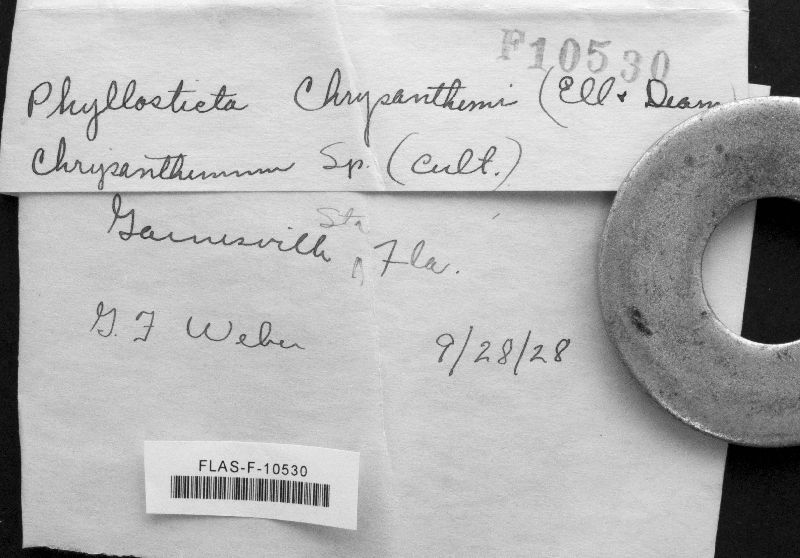 F10530
Phyllosticta Chrysanthemi (Ell & Dearn
Chrysanthemum Sp. (cult.)
Sta
Gainesville Fla.
G. F Weber
9/28/28
FLAS-F-10530